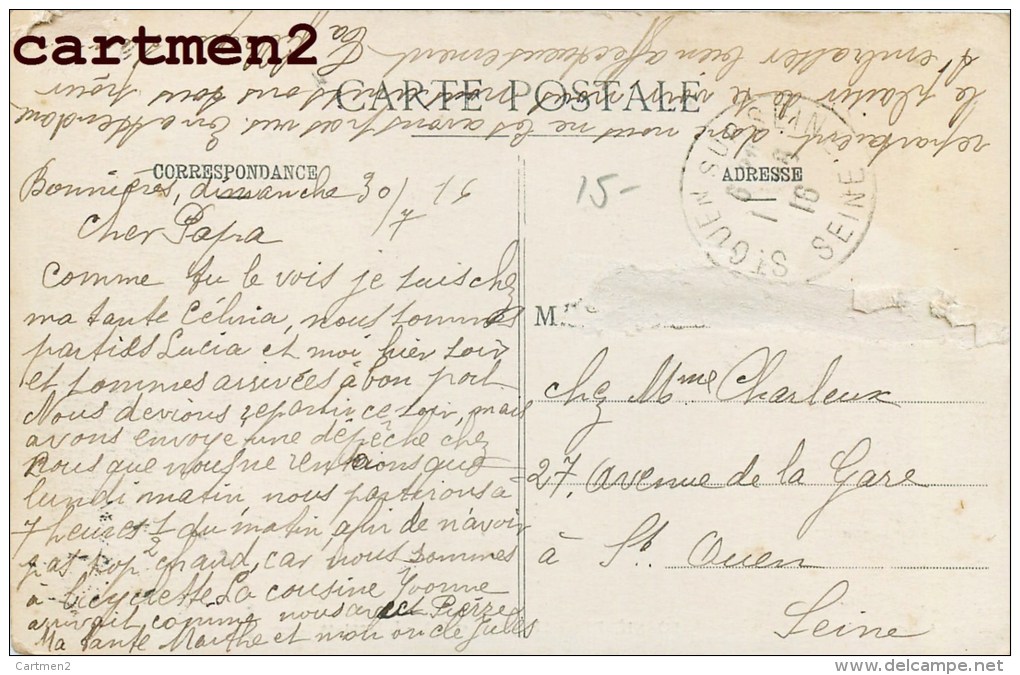 cartmen2
CARTE POSTALE
CORRESPONDANCE
ADRESSE
15-
ST OUEN SUR SEINE
SEINE
16
Bonnières, dimanche 30/7 16
Cher Papa
comme tu le vois je suis chez
ma tante Célina, nous sommes
parties Lucia et moi hier soir
et sommes arrivées à bon port
Nous devions repartir ce soir, mais
avons envoyé une dépêche chez
nous que nous ne rentrions que
lundi matin nous partirons à
7 heures 1/2 du matin afin de n'avoir
pas trop chaud, car nous sommes
à bicyclette La cousine Yvonne
arrivait comme nous avec Pierre
Ma tante Marthe et mon oncle Jules
repartaient donc nous ne les avons pas vus. En attendant
le plaisir de te voir nous pour
t'embrasser bien affectueusement
Ta
M
chez Mme Charleux
27, avenue de la Gare
à St. Ouen
Seine
Cartmen2
www.delcampe.net